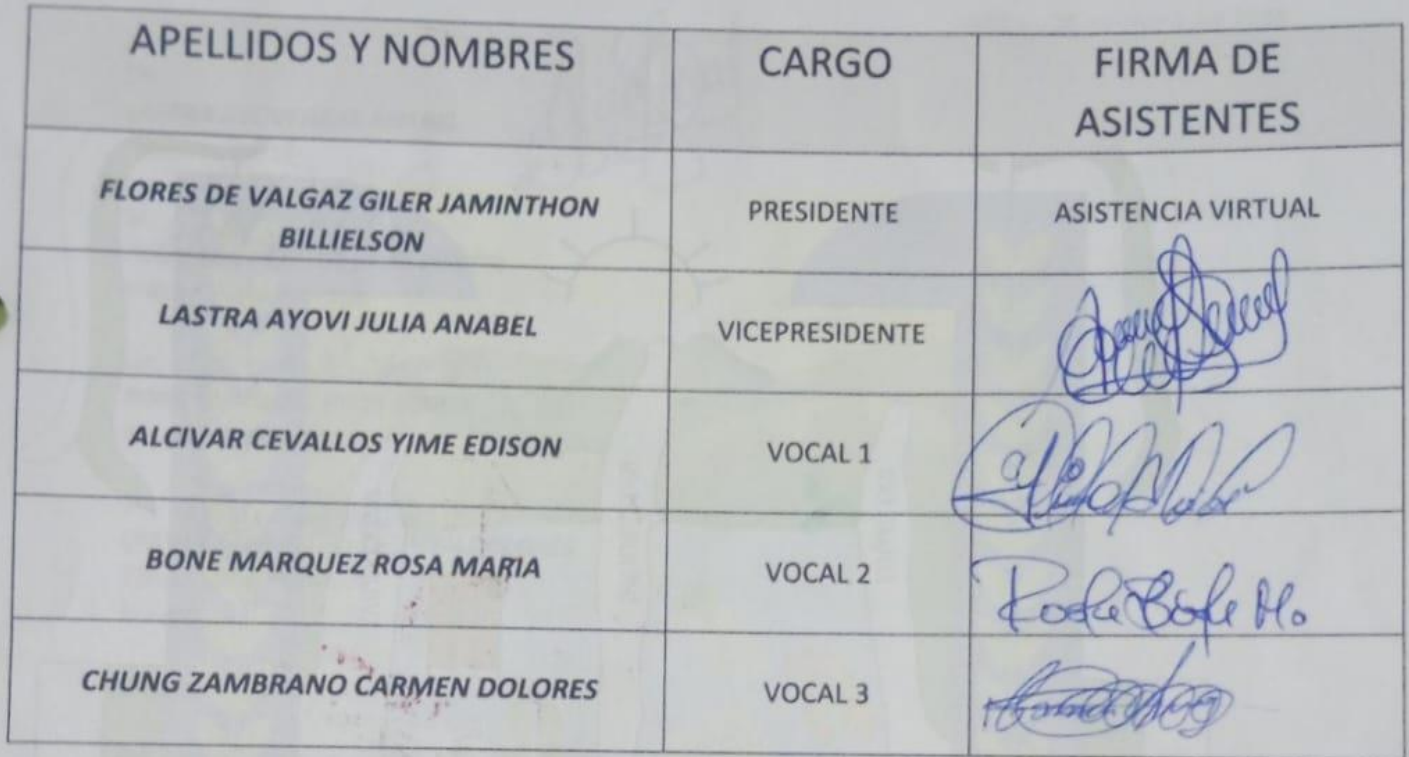 APELLIDOS Y NOMBRES CARGO FIRMA DE
ASISTENTES
FLORES DE VALGAZ GILER JAMINTHON
BILLIELSON PRESIDENTE ASISTENCIA VIRTUAL
LASTRA AYOVI JULIA ANABEL VICEPRESIDENTE
ALCIVAR CEVALLOS YIME EDISON VOCAL 1
BONE MARQUEZ ROSA MARIA VOCAL 2
CHUNG ZAMBRANO CARMEN DOLORES VOCAL 3